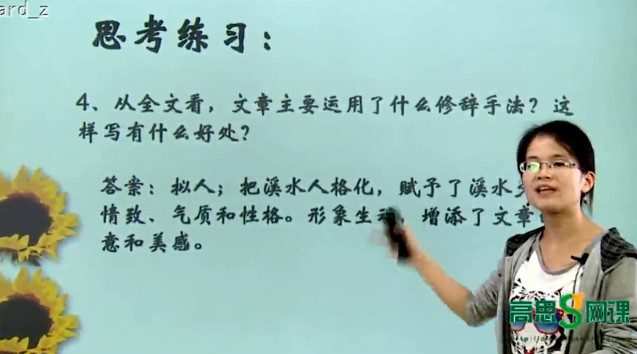 ard_z
思考练习：
4、从全文看，文章主要运用了什么修辞手法？这
样写有什么好处？
答案：拟人；把溪水人格化，赋予了溪水
情致、气质和性格。形象生动，增添了文章
意和美感。
高思网课
http://